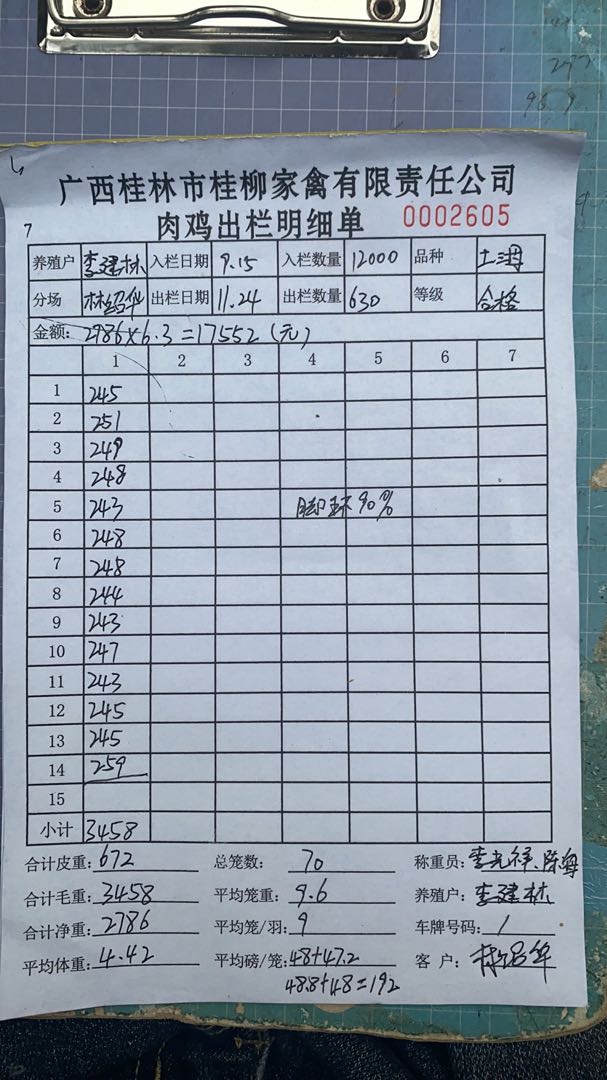 广西桂林市桂柳家禽有限责任公司
肉鸡出栏明细单 0002605
7
养殖户 李建林 入栏日期 9.15 入栏数量 12000 品种
分场 林绍华 出栏日期 11.24 出栏数量 630 等级 合格
金额: 2986×6.3=17552(元)
1 2 3 4 5 6 7
1 245
2 251
3 249
4 248
5 243 脚环90%
6 248
7 248
8 244
9 243
10 247
11 243
12 245
13 245
14 259
15
小计 3458
合计皮重: 672 总笼数: 70 称重员:
合计毛重: 3458 平均笼重: 9.6 养殖户: 李建林
合计净重: 2786 平均笼/羽: 9 车牌号码: /
平均体重: 4.42 平均磅/笼: 48+47.2 客户: 林绍华
48.8+48=192